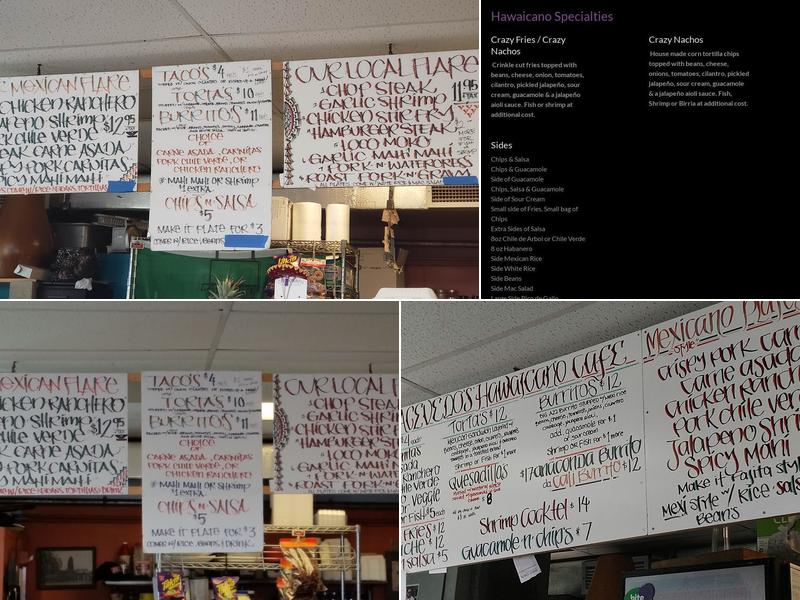 MEXICAN FLARE
CHICKEN RANCHERO
JALAPENO SHRIMP $12.95
PORK CHILE VERDE
STEAK CARNE ASADA
CRISPY PORK CARNITAS
SPICY MAHI MAHI
TACO'S $4
TORTAS $10
BURRITO'S $11
CHOICE
OF
CARNE ASADA, CARNITAS
PORK CHILE VERDE, OR
CHICKEN RANCHERO
* MAHI MAHI OR SHRIMP
$1 EXTRA
CHIPS N SALSA
$5
MAKE IT PLATE FOR $3
COMES W/ RICE, BEANS
OUR LOCAL FLARE
CHOP STEAK
GARLIC SHRIMP 11.95
CHICKEN STIR FRY
HAMBURGER STEAK
LOCO MOCO
GARLIC MAHI MAHI
PORK N WATERCRESS
ROAST PORK N GRAVY
ALL PLATES COME W/ RICE MAC SALAD
Hawaicano Specialties
Crazy Fries / Crazy
Nachos
Crinkle cut fries topped with
beans, cheese, onion, tomatoes,
cilantro, pickled jalapeño, sour
cream, guacamole & a jalapeño
aioli sauce. Fish or shrimp at
additional cost.
Crazy Nachos
House made corn tortilla chips
topped with beans, cheese,
onions, tomatoes, cilantro, pickled
jalapeño, sour cream, guacamole
& a jalapeño aioli sauce. Fish,
Shrimp or Birria at additional cost.
Sides
Chips & Salsa
Chips & Guacamole
Side of Guacamole
Chips, Salsa & Guacamole
Side of Sour Cream
Small side of Fries, Small bag of
Chips
Extra Sides of Salsa
8oz Chile de Arbol or Chile Verde
8 oz Habanero
Side Mexican Rice
Side White Rice
Side Beans
Side Mac Salad
Large Side Pico de Gallo
MEXICAN FLARE
CHICKEN RANCHERO
JALAPENO SHRIMP $12.95
CHILE VERDE
CARNE ASADA
PORK CARNITAS
MAHI MAHI
TACO'S $4
TORTAS $10
BURRITO'S $11
CHOICE
OF
CARNE ASADA, CARNITAS
PORK CHILE VERDE, OR
CHICKEN RANCHERO
* MAHI MAHI OR SHRIMP
$1 EXTRA
CHIPS N SALSA
$5
MAKE IT PLATE FOR $3
COMES W/ RICE, BEANS & DRINK
OUR LOCAL FLARE
CHOP STEAK
GARLIC SHRIMP
CHICKEN STIR
HAMBURGER STEAK
LOCO MOCO
GARLIC MAHI
PORK N
ROAST PORK N
ACEVEDO'S HAWAICANO CAFE
TORTAS $12
BURRITOS $12
add guacamole for $1
Shrimp or Fish for $1 more
Quesadillas
$8
$17 anaconda Burrito
da Cali Burrito $12
Shrimp Cocktel $14
Guacamole n chips $7
Mexicano Plates
Style
Crispy Pork Carn
Carne asada
Chicken Ranch
Pork chile verd
Jalapeno Shri
Spicy Mahi
Make it fajita style
Mexi style w/ Rice salsa
Beans